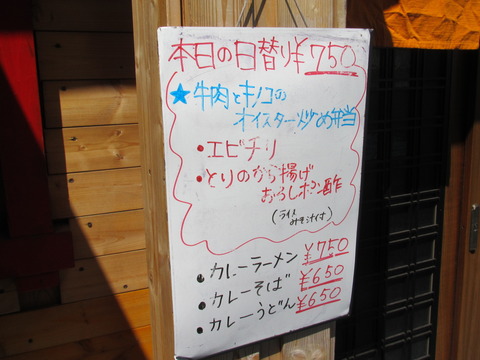 本日の日替り¥750
★牛肉とキノコの
オイスター炒め弁当
・エビチリ
・とりのから揚げ
おろしポン酢
(ライス
みそ汁付)
・カレーラーメン ¥750
・カレーそば ¥650
・カレーうどん ¥650